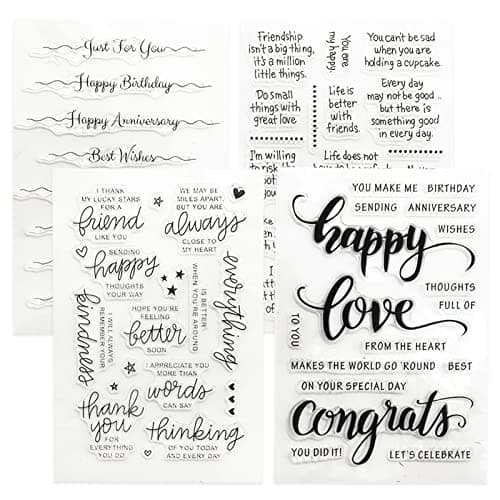 Just For You
Happy Birthday
Happy Anniversary
Best Wishes
Friendship
isn't a big thing,
it's a million
little things.
You are
my happy.
You can't be sad
when you are
holding a cupcake.
Do small
things with
great love
Life is
better
with
friends.
Every day
may not be good...
but there is
something good
in every day.
I'm willing
to risk the
Life does not
I THANK
MY LUCKY STARS
FOR A
friend
LIKE YOU
WE MAY BE
MILES APART,
BUT YOU ARE
always
CLOSE TO
MY HEART
SENDING
happy
THOUGHTS
YOUR WAY
everything
IS BETTER
WHEN YOU'RE
AROUND
I WILL ALWAYS
REMEMBER YOUR
kindness
HOPE YOU'RE
FEELING
better
SOON
I APPRECIATE YOU
MORE THAN
words
CAN SAY
thank
you
FOR
EVERYTHING
YOU DO
thinking
OF YOU TODAY
AND EVERY DAY
YOU MAKE ME BIRTHDAY
SENDING ANNIVERSARY
happy
WISHES
love
THOUGHTS
FULL OF
TO YOU
FROM THE HEART
MAKES THE WORLD GO 'ROUND BEST
ON YOUR SPECIAL DAY
Congrats
YOU DID IT! LET'S CELEBRATE